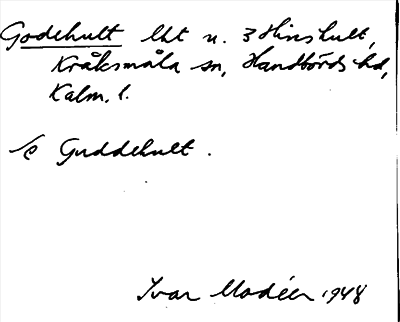 Godehult lht u. 3 Hinshult,
Kråksmåla sn, Handbörds hd,
Kalm. l.
/c Guddehult.
Ivar Modéer 1948